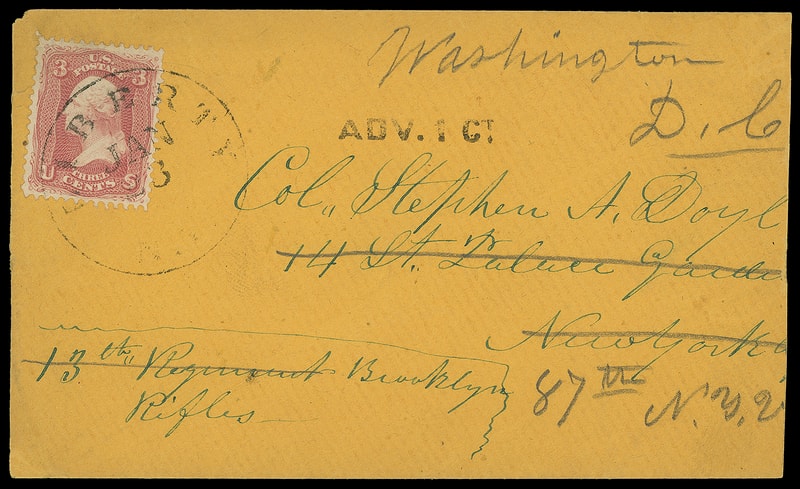 3 U.S. 3
POSTAGE
U THREE S
CENTS
BERTY
JAN
3
Washington
D. C
ADV. 1 CT.
Col,, Stephen A. Doyl
14 St. Palace Garde
New York
13th,, Regiment Brooklyn
Rifles
87th
N. Y. V